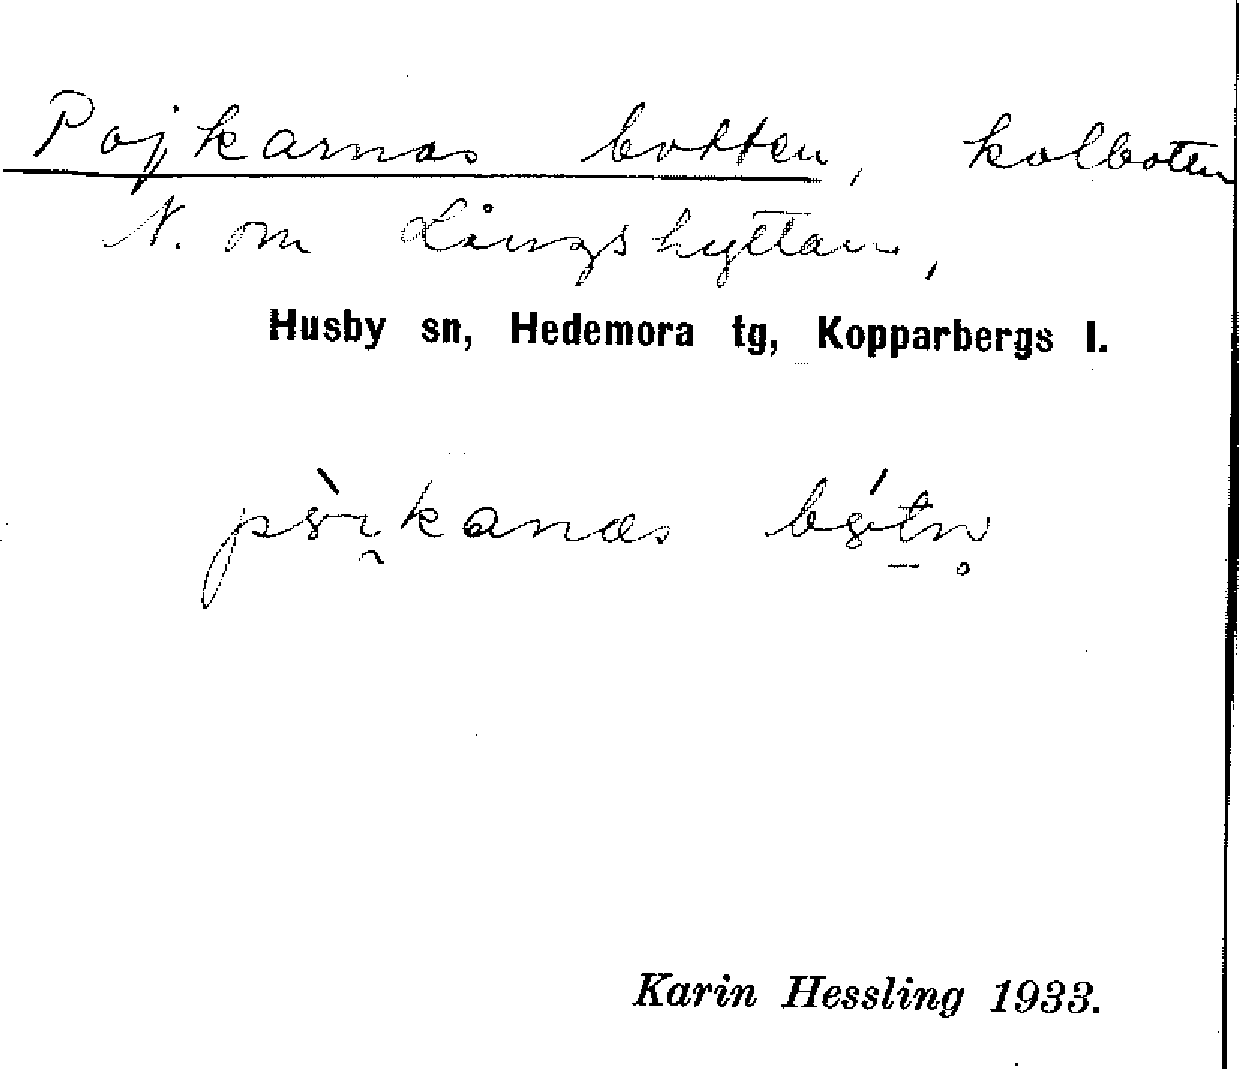 Pojkarnas botten, kolboten
N. om Långshyttan,
Husby sn, Hedemora tg, Kopparbergs l.
Karin Hessling 1933.